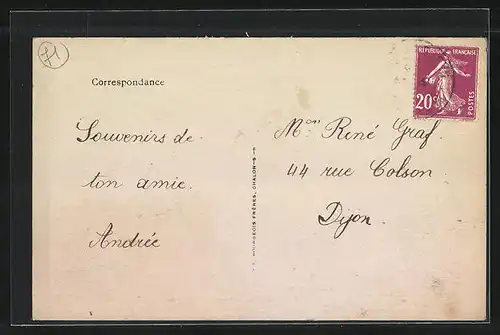 71
RÉPUBLIQUE FRANÇAISE
20c
POSTES
Correspondance
Souvenirs de
ton amie
Andrée
BOURGEOIS FRÈRES, CHALON-S-S
Mon René Graf
44 rue Colson
Dijon